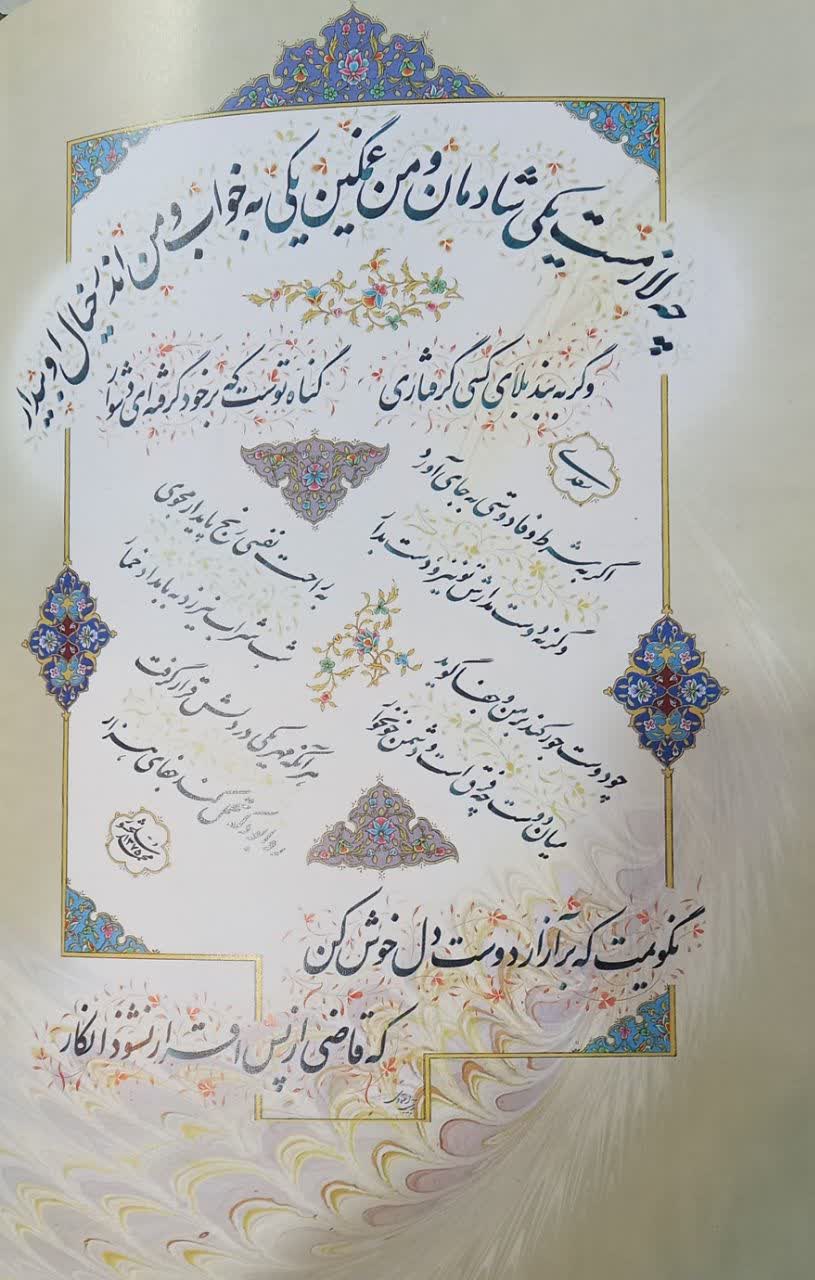 چه لازمست یکی شادمان و من غمگین یکی به خواب و من اندر خیال او بیدار
وگر به بند بلای کسی گرفتاری
گناه توست که بر خود گرفته‌ای دشوار
سعدی
اگر به شرط وفا دوستی به جای آورد
وگرنه دوست مدارش تو نیز و دست بدار
به راحت نفسی رنج پایدار مجوی
شب شراب نیرزد به بامداد خمار
چو دوست جور کند بر من و جفا گوید
میان دوست چه فرق است و دشمن خونخوار
هر آنکه مهر یکی در دلش قرار گرفت
روا بود که تحمل کند جفای هزار
محمد سلحشور ۱۳۷۵
نگویمت که بر آزار دوست دل خوش کن
که قاضی از پس اقرار نشنود انکار